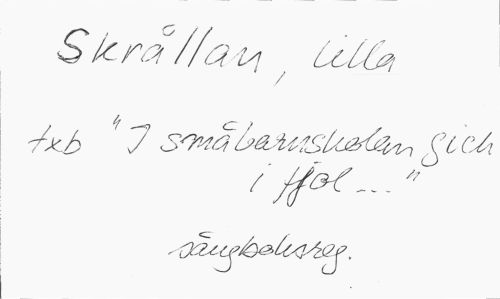 Skrållan, lilla
txb "I småbarnskolan gick
i fjol..."
sångboksreg.